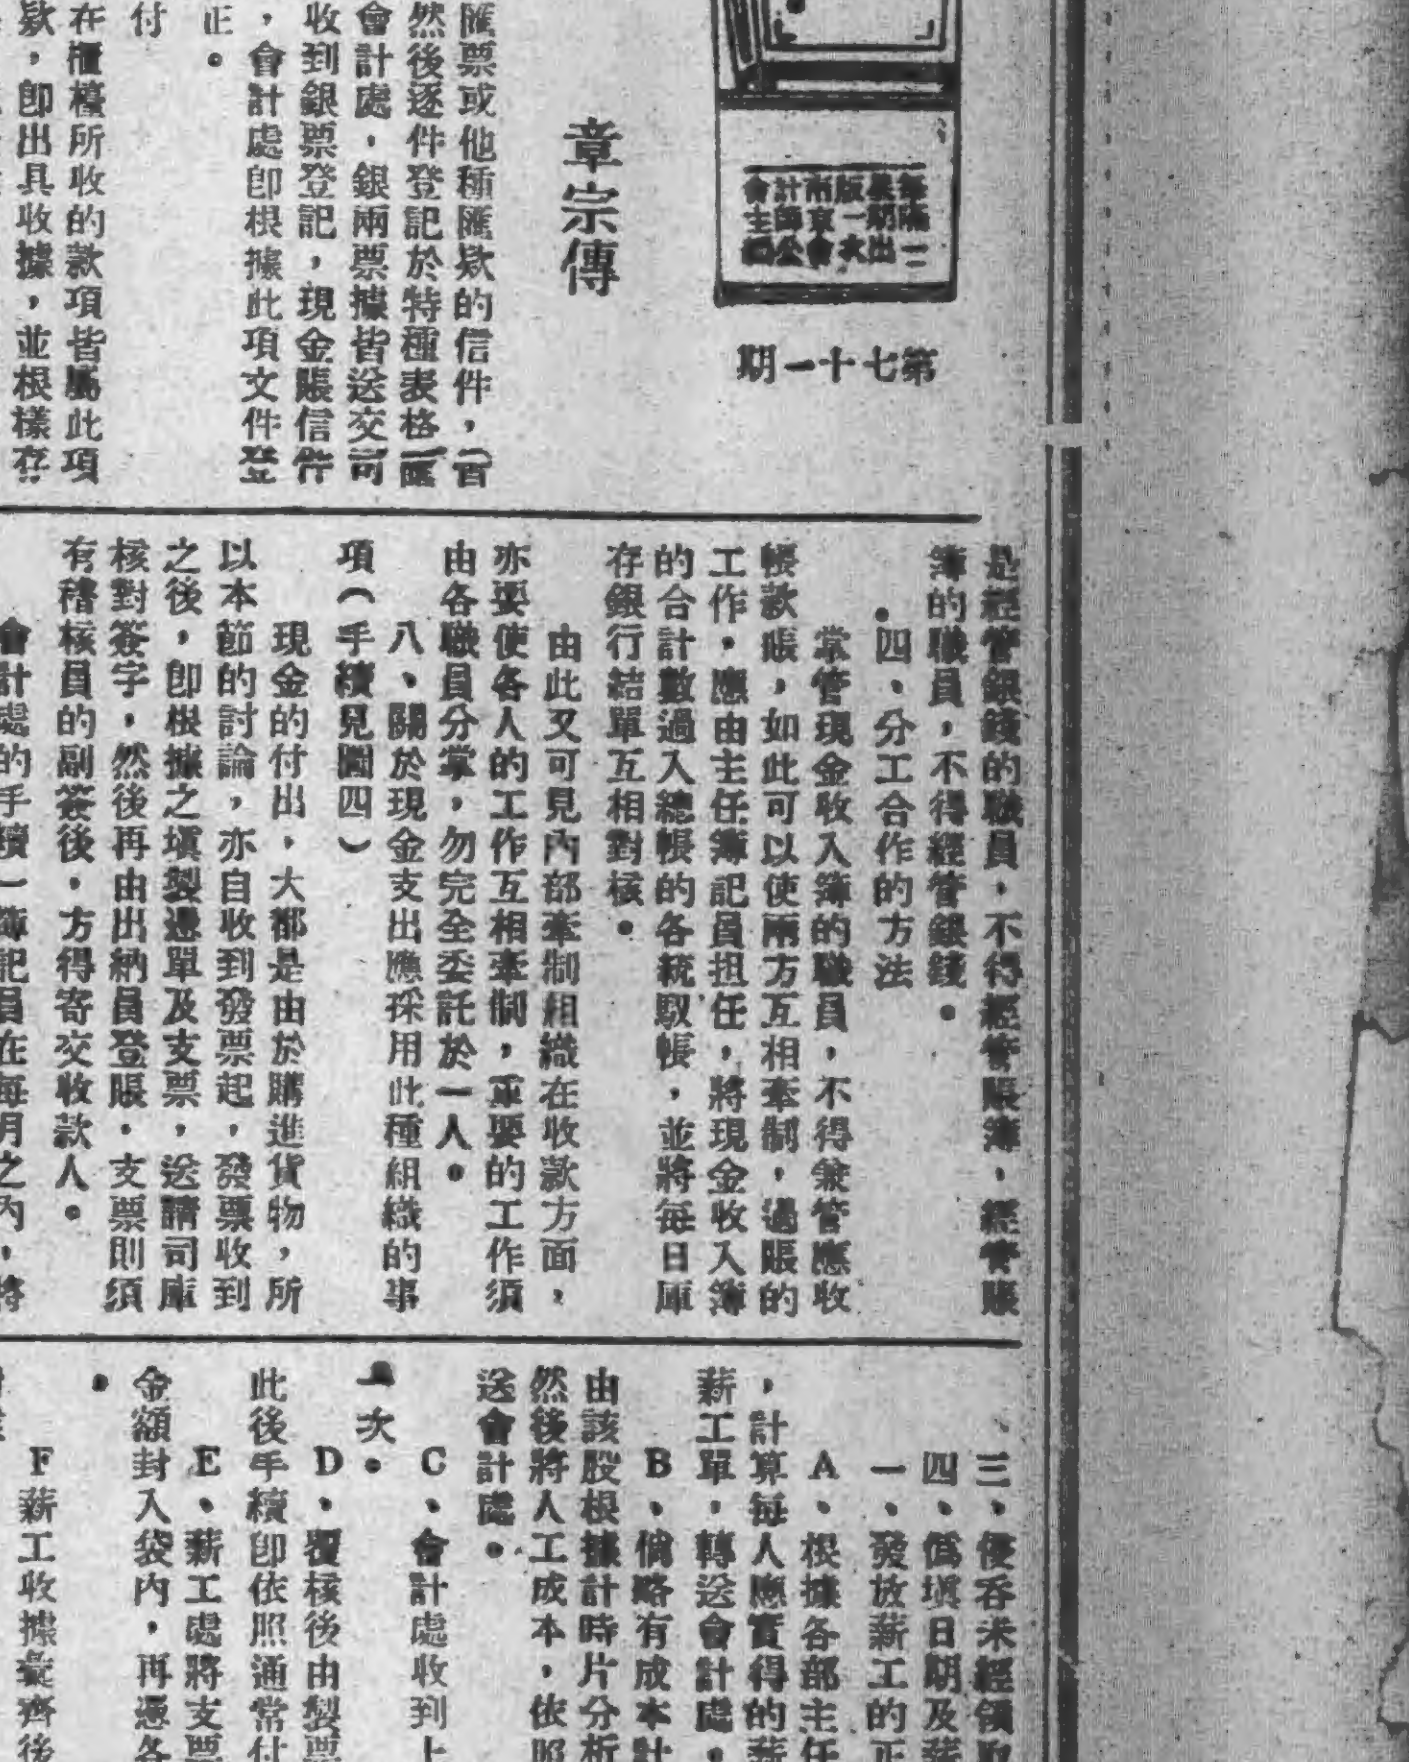 每隔二
星期出
版一次
南京會
計師公
會主編
第七十一期
章宗傳
匯票或他種匯欵的信件，（百
然後逐件登記於特種表格（匯
會計處，銀兩票據皆送交司
收到銀票登記，現金賬信件
，會計處卽根據此項文件登
正。
付
在櫃檯所收的款項皆屬此項
欵，卽出具收據，並根樣存
是經管銀錢的職員，不得經管賬簿，經管賬
簿的職員，不得經管銀錢。
四、分工合作的方法
掌管現金收入簿的職員，不得兼管應收
帳款賬，如此可以使兩方互相牽制，過賬的
工作，應由主任簿記員担任，將現金收入簿
的合計數過入總帳的各統馭帳，並將每日庫
存銀行結單互相對核。
由此又可見內部牽制組織在收款方面，
亦要使各人的工作互相牽制，重要的工作須
由各職員分掌，勿完全委託於一人。
八、關於現金支出應採用此種組織的事
項（手續見圖四）
現金的付出，大都是由於購進貨物，所
以本節的討論，亦自收到發票起，發票收到
之後，卽根據之塡製憑單及支票，送請司庫
核對簽字，然後再由出納員登賬，支票則須
有稽核員的副簽後，方得寄交收款人。
會計處的手續—簿記員在每月之內，將
三、侵吞未經領取
四、僞塡日期及薪
一、發放薪工的正
A、根據各部主任
，計算每人應實得的薪
薪工單，轉送會計處，
B、倘略有成本計
由該股根據計時片分析
然後將人工成本，依照
送會計處。
C、會計處收到上
一次。
D、覆核後由製票
此後手續卽依照通常付
E、薪工處將支票
金額封入袋內，再憑各
。
F薪工收據彙齊後